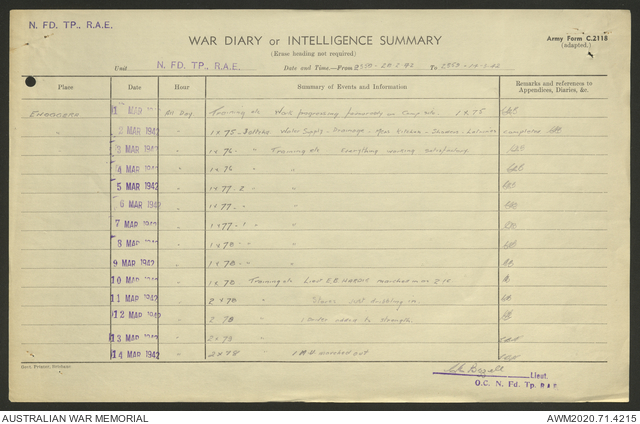 N. FD. TP., R.A.E.
WAR DIARY or INTELLIGENCE SUMMARY
(Erase heading not required)
Army Form C.2118
(adapted.)
Unit N. FD. TP., R.A.E. Date and Time—From 2359 To 2359
Place Date Hour Summary of Events and Information Remarks and references to Appendices, Diaries, &c.
1 MAR All Day Training etc Work progressing on Camp 1 x 75
2 MAR 1942 " 1 x 75 Water Supply - Drainage - Mess Kitchens - Showers - Latrines completed
3 MAR " 1 x 76 " Training etc Everything working satisfactory.
4 MAR " 1 x 76 " "
5 MAR 1942 " 1 x 77 " "
6 MAR 1942 " 1 x 77 " "
7 MAR 1942 " 1 x 77 " "
8 MAR " 1 x 78 " "
9 MAR 1942 " 1 x 78 " "
10 MAR " 1 x 78 Training etc. Lieut E.B. HARDIE marched in
11 MAR 1942 " 2 x 78 " Stores still
12 MAR 1942 " 2 78 "
13 MAR 1942 " 2 x 78 "
14 MAR 1942 " 2 x 78 " marched out
Govt. Printer, Brisbane
Lieut.
O.C. N. Fd. Tp. R.A.E.
AUSTRALIAN WAR MEMORIAL AWM2020.71.4215